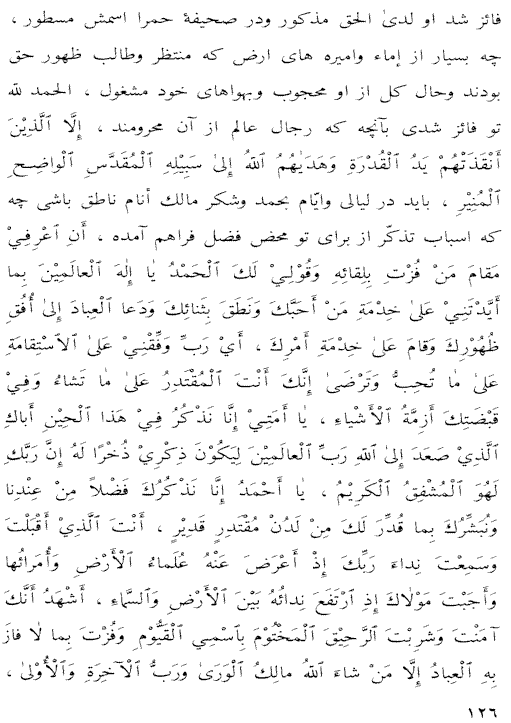 فائز شد او لدىٰ الحق مذكور ودر صحيفهٔ حمرا اسمش مسطور ،
چه بسيار از إماء واميره هاى ارض كه منتظر وطالب ظهور حق
بودند وحال كل از او محجوب وبهواهاى خود مشغول ، الحمد لله
تو فائز شدى بآنچه كه رجال عالم از آن محرومند ، إِلَّا ٱلَّذِيْنَ
أَنْقَذَتْهُمْ يَدُ ٱلْقُدْرَةِ وَهَدَيٰهُمُ ٱللهُ إِلىٰ سَبِيْلِهِ ٱلْمُقَدَّسِ ٱلْواضِحِ
ٱلْمُنِيْرِ ، بايد در ليالى وايّام بحمد وشكر مالك أنام ناطق باشى چه
كه اسباب تذكّر از براى تو محض فضل فراهم آمده ، أَنِ ٱعْرِفِيْ
مَقامَ مَنْ فُزْتِ بِلِقائِهِ وَقُوْلِيْ لَكَ ٱلْحَمْدُ يا إِلٰهَ ٱلْعالَمِيْنَ بِما
أَيَّدْتَنِيْ عَلىٰ خِدْمَةِ مَنْ أَحَبَّكَ وَنَطَقَ بِثَنائِكَ وَدَعا ٱلْعِبادَ إِلىٰ أُفُقِ
ظُهُوْرِكَ وَقامَ عَلىٰ خِدْمَةِ أَمْرِكَ ، أَيْ رَبِّ وَفِّقْنِيْ عَلىٰ ٱلْاسْتِقامَةِ
عَلىٰ ما تُحِبُّ وَتَرْضىٰ إِنَّكَ أَنْتَ ٱلْمُقْتَدِرُ عَلىٰ ما تَشاءُ وَفِيْ
قَبْضَتِكَ أَزِمَّةُ ٱلْأَشْياءِ ، يا أَمَتِيْ إِنَّا نَذْكُرُ فِيْ هَذا ٱلْحِيْنِ أَباكِ
ٱلَّذِيْ صَعَدَ إِلىٰ ٱللهِ رَبِّ ٱلْعالَمِيْنَ لِيَكُوْنَ ذِكْرِيْ ذُخْرًا لَهُ إِنَّ رَبَّكِ
لَهُوَ ٱلْمُشْفِقُ ٱلْكَرِيْمُ ، يا أَحْمَدُ إِنَّا نَذْكُرُكَ فَضْلاً مِنْ عِنْدِنا
وَنُبَشِّرُكَ بِما قُدِّرَ لَكَ مِنْ لَدُنْ مُقْتَدِرٍ قَدِيْرٍ ، أَنْتَ ٱلَّذِيْ أَقْبَلْتَ
وَسَمِعْتَ نِداءَ رَبِّكَ إِذْ أَعْرَضَ عَنْهُ عُلَماءُ ٱلْأَرْضِ وَأُمَرائُها
وَأَجَبْتَ مَوْلاكَ إِذِ ٱرْتَفَعَ نِدائُهُ بَيْنَ ٱلْأَرْضِ وَٱلسَّماءِ ، أَشْهَدُ أَنَّكَ
آمَنْتَ وَشَرِبْتَ ٱلرَّحِيْقَ ٱلْمَخْتُوْمَ بِٱسْمِي ٱلْقَيُّوْمِ وَفُزْتَ بِما لا فازَ
بِهِ ٱلْعِبادُ إِلَّا مَنْ شاءَ ٱللهُ مالِكُ ٱلْوَرىٰ وَرَبُّ ٱلْآخِرَةِ وَٱلْأُوْلىٰ ،
١٢٦